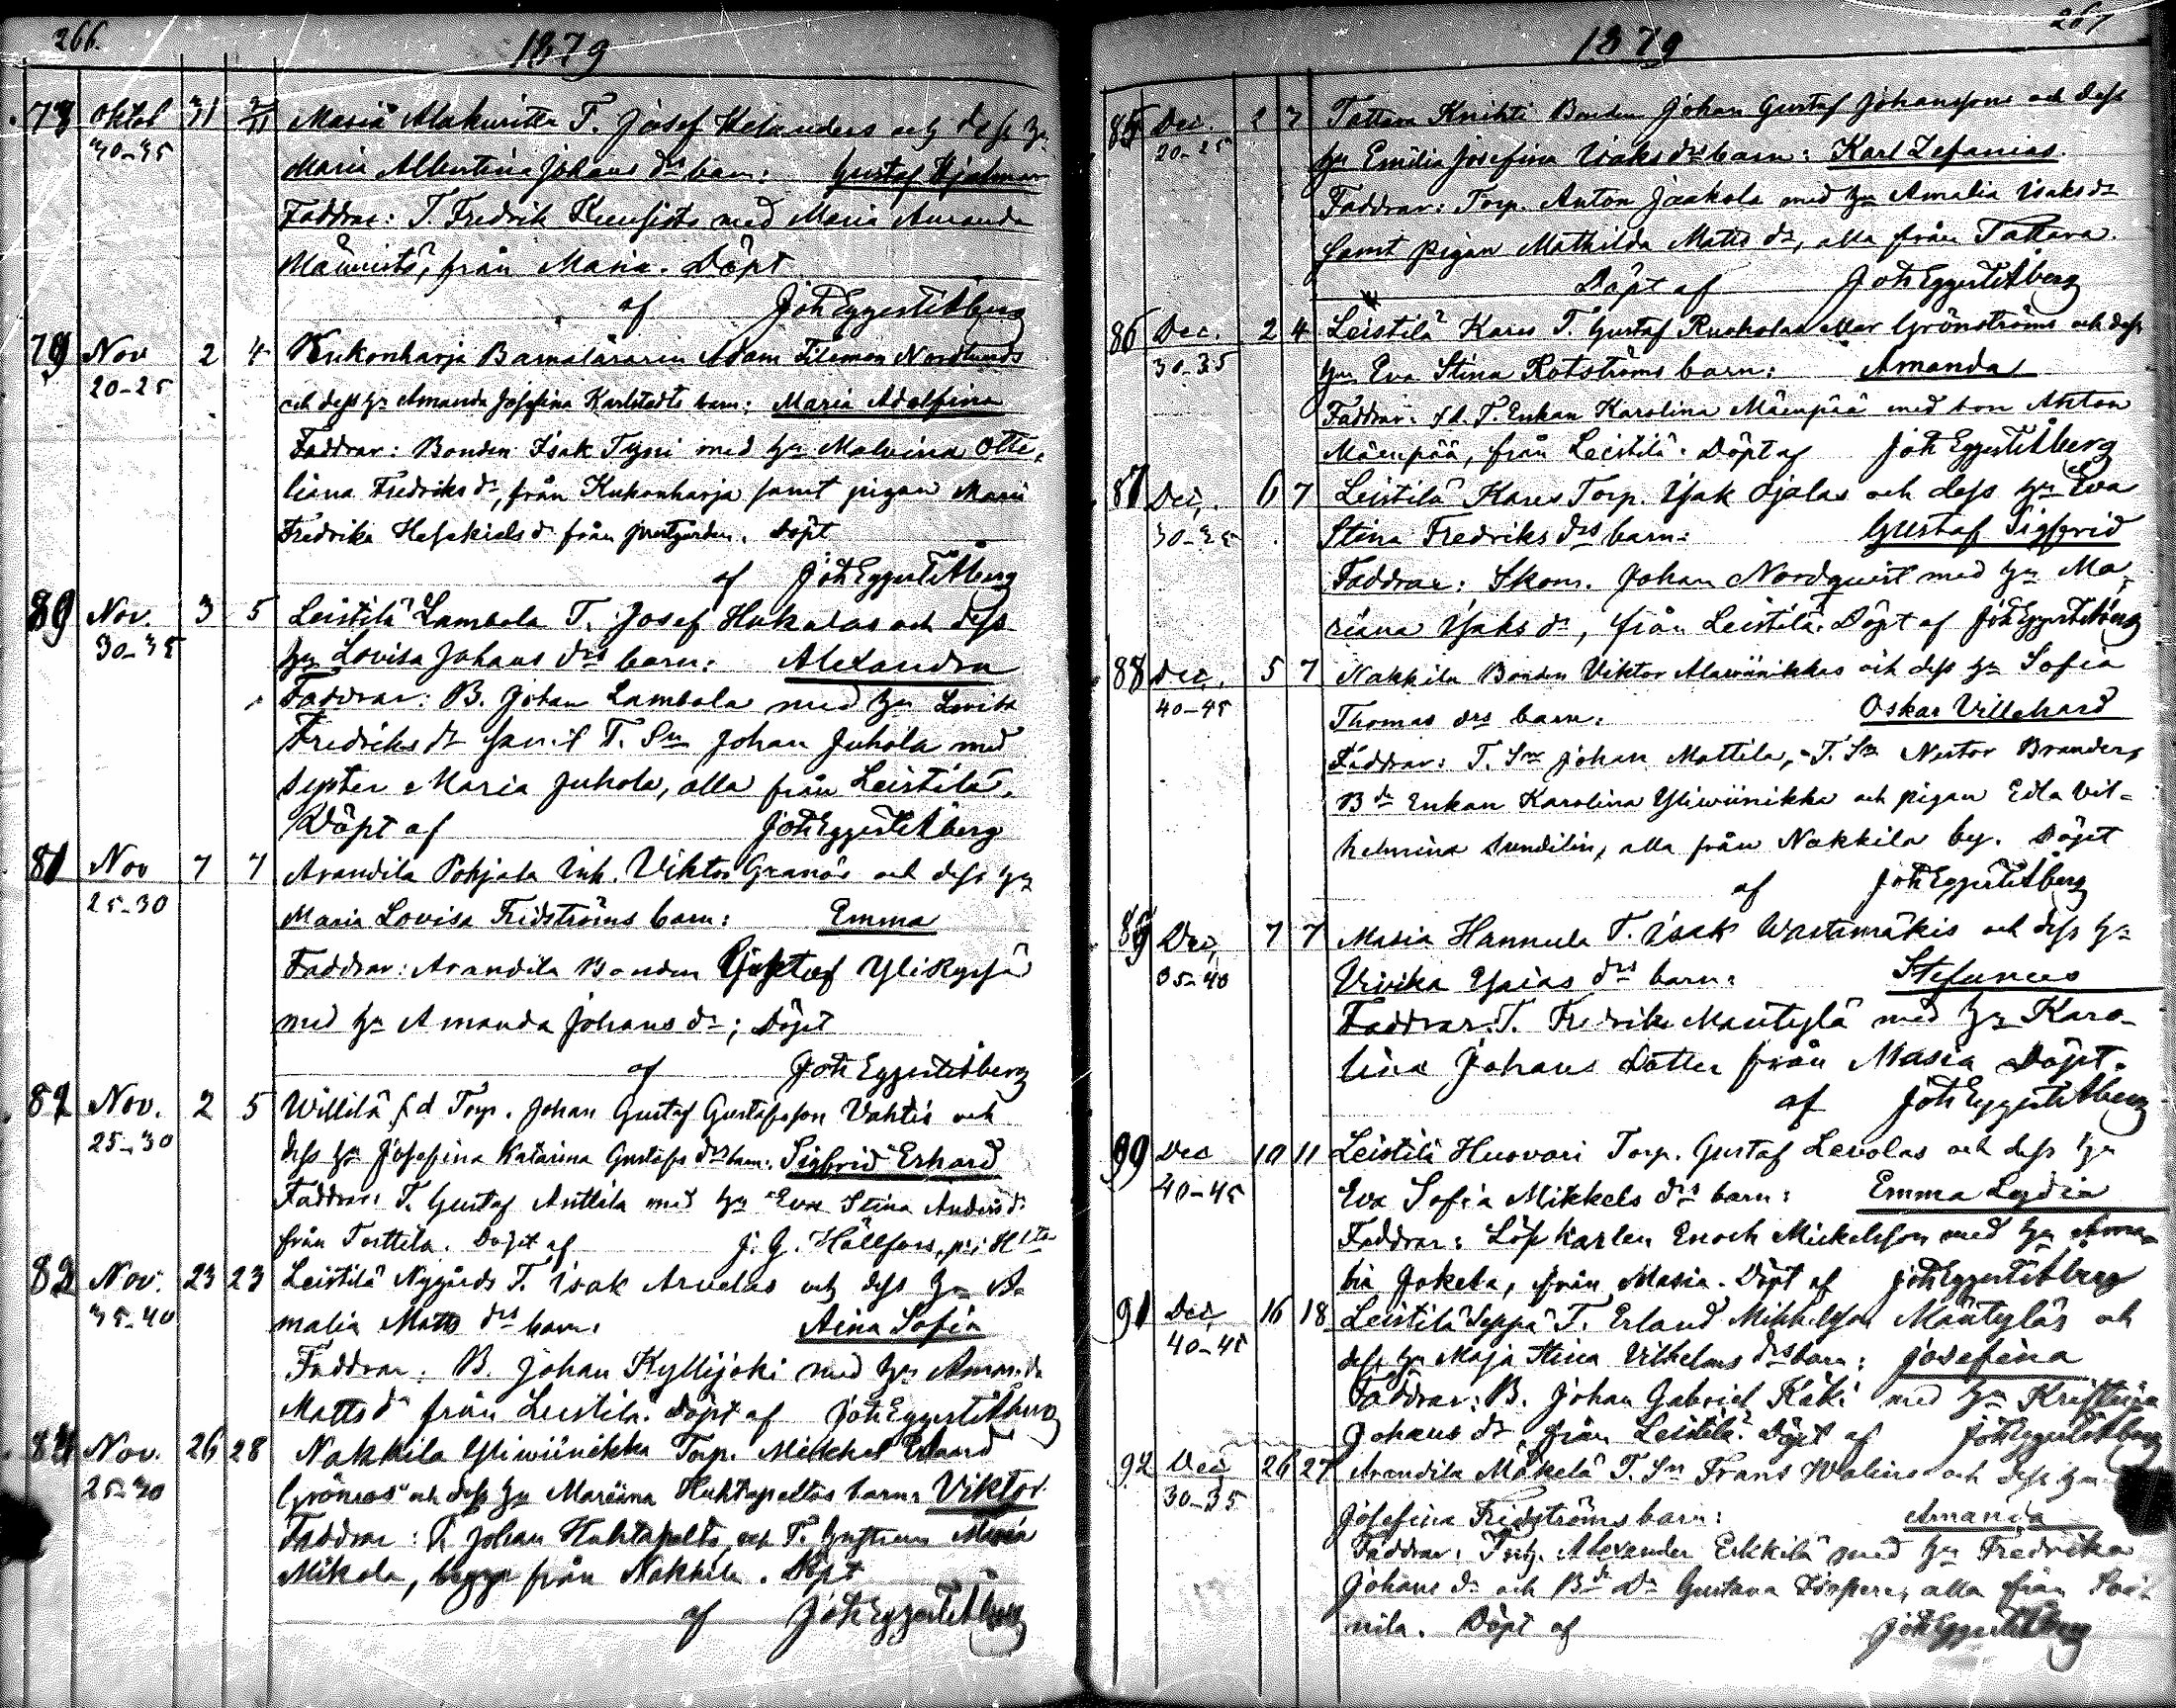 266.
1879
78 Oktob 31 2/11 Masia Alakuritta T. Josef Helanders och dess hu
30-35 Maria Albertina Johans drs barn: Gustaf Hjalmar
Faddrar: T. Fredrik Kuusisto med Maria Amanda
Männistö, från Masia. Döpt
af Joh Eggert Åberg
79 Nov 2 4 Kukonharja Barnaläraren Adam Fileman Nordlunds
20-25 och dess hu Amanda Josefina Karlstedts barn: Maria Adolfina
Faddrar: Bonden Isak Tyni med hu Malvina Otte,
liana Fredriks dr, från Kukonharja samt pigan Maria
Fredrika Hesekiels d från prestgården. Döpt
af Joh Eggert Åberg
80 Nov. 3 5 Leistilä Lambola T. Josef Hukalas och dess
30-35 hu Lovisa Johans drs barn: Alexandra
Faddrar: B. Johan Lambola med hu Lovisa
Fredriks dr samt T. Sn Johan Juhola med
syster Maria Juhola, alla från Leistilä.
Döpt af Joh Eggert Åberg
81 Nov 7 7 Arandila Pohjala Inh. Viktor Granös och dess hu
25-30 Maria Lovisa Fridströms barn: Emma
Faddrar: Arandila Bonden Gustaf Ylikyssä
med hu Amanda Johans dr; Döpt
af Joh Eggert Åberg
82 Nov. 2 5 Willilä f d Torp. Johan Gustaf Gustafsson Vahtis och
25-30 dess hu Josefina Katarina Gustafs drs barn: Sigfrid Erhard
Faddrar: T. Gustaf Anttila med hu Eva Stina Anders d.
från Torttila. Döpt af J. G. Hällfors, p. i H
83 Nov. 23 23 Leistilä Nygårds T. Isak Arvelas och dess hu A-
35-40 malia Matts drs barn: Aina Sofia
Faddrar: B. Johan Kyllijoki med hu Amanda
Matts dr från Leistilä. Döpt af Joh Eggert Åberg
84 Nov. 26 28 Nakkila Yliwiinikka Torp. Mikkel Erland
25-30 Grönroos och dess hu Mariana Huhtapeltos barn: Viktor
Faddrar: T. Johan Huhtapelto och T. hustrun Maria
Mikola, begge från Nakkila. Döpt
af Joh Eggert Åberg
267
1879
85 Dec. 2 7 Tattara Knihti Bonden Johan Gustaf Johanssons och dess
20-25 hu Emilia Josefina Isaks drs barn: Karl Zefanias.
Faddrar: Torp. Anton Jaakola med hu Amalia Isaks dr
samt pigan Mathilda Matts dr, alla från Tattara.
Döpt af Joh Eggert Åberg
86 Dec. 2 4 Leistilä Kares T. Gustaf Ruoholas eller Grönströms och dess
30-35 hu Eva Stina Rotströms barn: Amanda
Faddrar: f.d. T. Enkan Karolina Mäenpää med son Anton
Mäenpää, från Leistilä. Döpt af Joh Eggert Åberg
87 Dec. 6 7 Leistilä Kares Torp. Isak Ojalas och dess hu Eva
30-35 Stina Fredriks drs barn: Gustaf Sigfrid
Faddrar: Skom. Johan Nordquist med hu Ma-
riana Isaks dr, från Leistilä. Döpt af Joh Eggert Åberg
88 Dec. 5 7 Nakkila Bonden Viktor Alawiinikkas och dess hu Sofia
40-45 Thomas drs barn: Oskar Villehard
Faddrar: T. Sn Johan Mattila, T. Sn Nestor Brander,
B de Enkan Karolina Yliwiinikka och pigan Edla Vil-
helmina Sundelin, alla från Nakkila by. Döpt
af Joh Eggert Åberg
89 Dec, 7 7 Masia Hannula T. Isak Westamäkis och dess hu
35-40 Vivika Esaias drs barn: Stefanus
Faddrar: T. Fredrik Mäntylä med hu Karo-
lina Johans dotter från Masia Döpt.
af Joh Eggert Åberg
90 Dec 10 11 Leistilä Huovari Torp. Gustaf Levolas och dess hu
40-45 Eva Sofia Mikkels drs barn: Emma Lydia
Faddrar: Löskarlen Enoch Mickelsson med hu
Jokela, från Masia. Döpt af Joh Eggert Åberg
91 Dec, 16 18 Leistilä Seppä T. Erland Mikkelsson Mäntyläs och
40-45 dess hu Maja Stina Vilhelms drs barn: Josefina
Faddrar: B. Johan Gabriel Käki med hu Kristina
Johans dr från Leistilä. Döpt af Joh Eggert Åberg
92 Dec, 26 27 Arandila Mäkelä T. Sn Frans Walins och dess hu
30-35 Josefina Fridströms barn: Amanda
Faddrar: Torp. Alexander Erkkilä med hu Fredrika
Johans dr och B de Dr Gustava, alla från
nila. Döpt af Joh Eggert Åberg